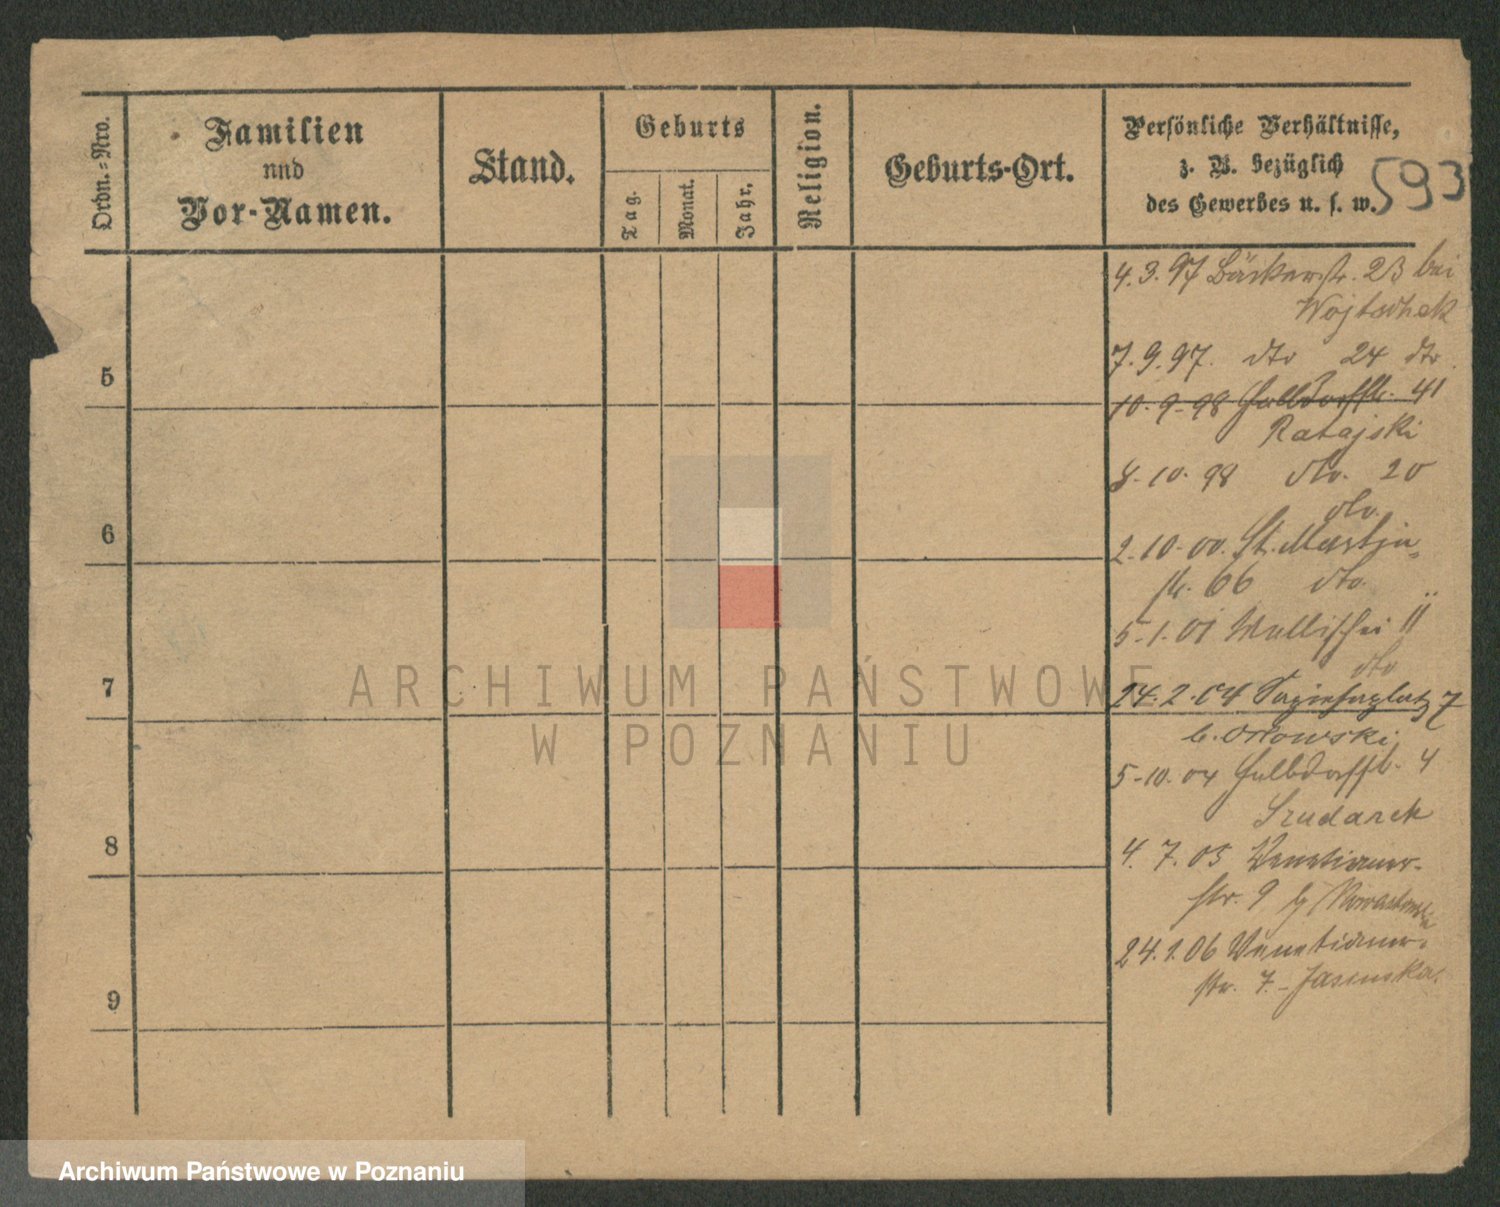 Ordn.-Nro.
Familien
und
Vor-Namen.
Stand.
Geburts
Tag.
Monat.
Jahr.
Religion.
Geburts-Ort.
Persönliche Verhältnisse,
z. B. bezüglich
des Gewerbes u. s. w.
593
4.3.97 Bäckerstr. 23 bei
Wojtschek
7.9.97. dto 24 dto
5
10.9.98 Halbdorfstr. 41
Ratajski
8.10.98 dto. 20
dto.
6
2.10.00. St. Martin-
str. 66 dto.
5.1.01 Wallischei 11
dto
7
24.2.04 Sapiehaplatz 7
b. Orlowski
5.10.04 Halbdorfstr. 4
Szudarek
8
4.7.05 Venetianer-
str. 9
24.1.06 Venetianer-
str. 7. - Jasinska.
9
ARCHIWUM PAŃSTWOWE
W POZNANIU
Archiwum Państwowe w Poznaniu